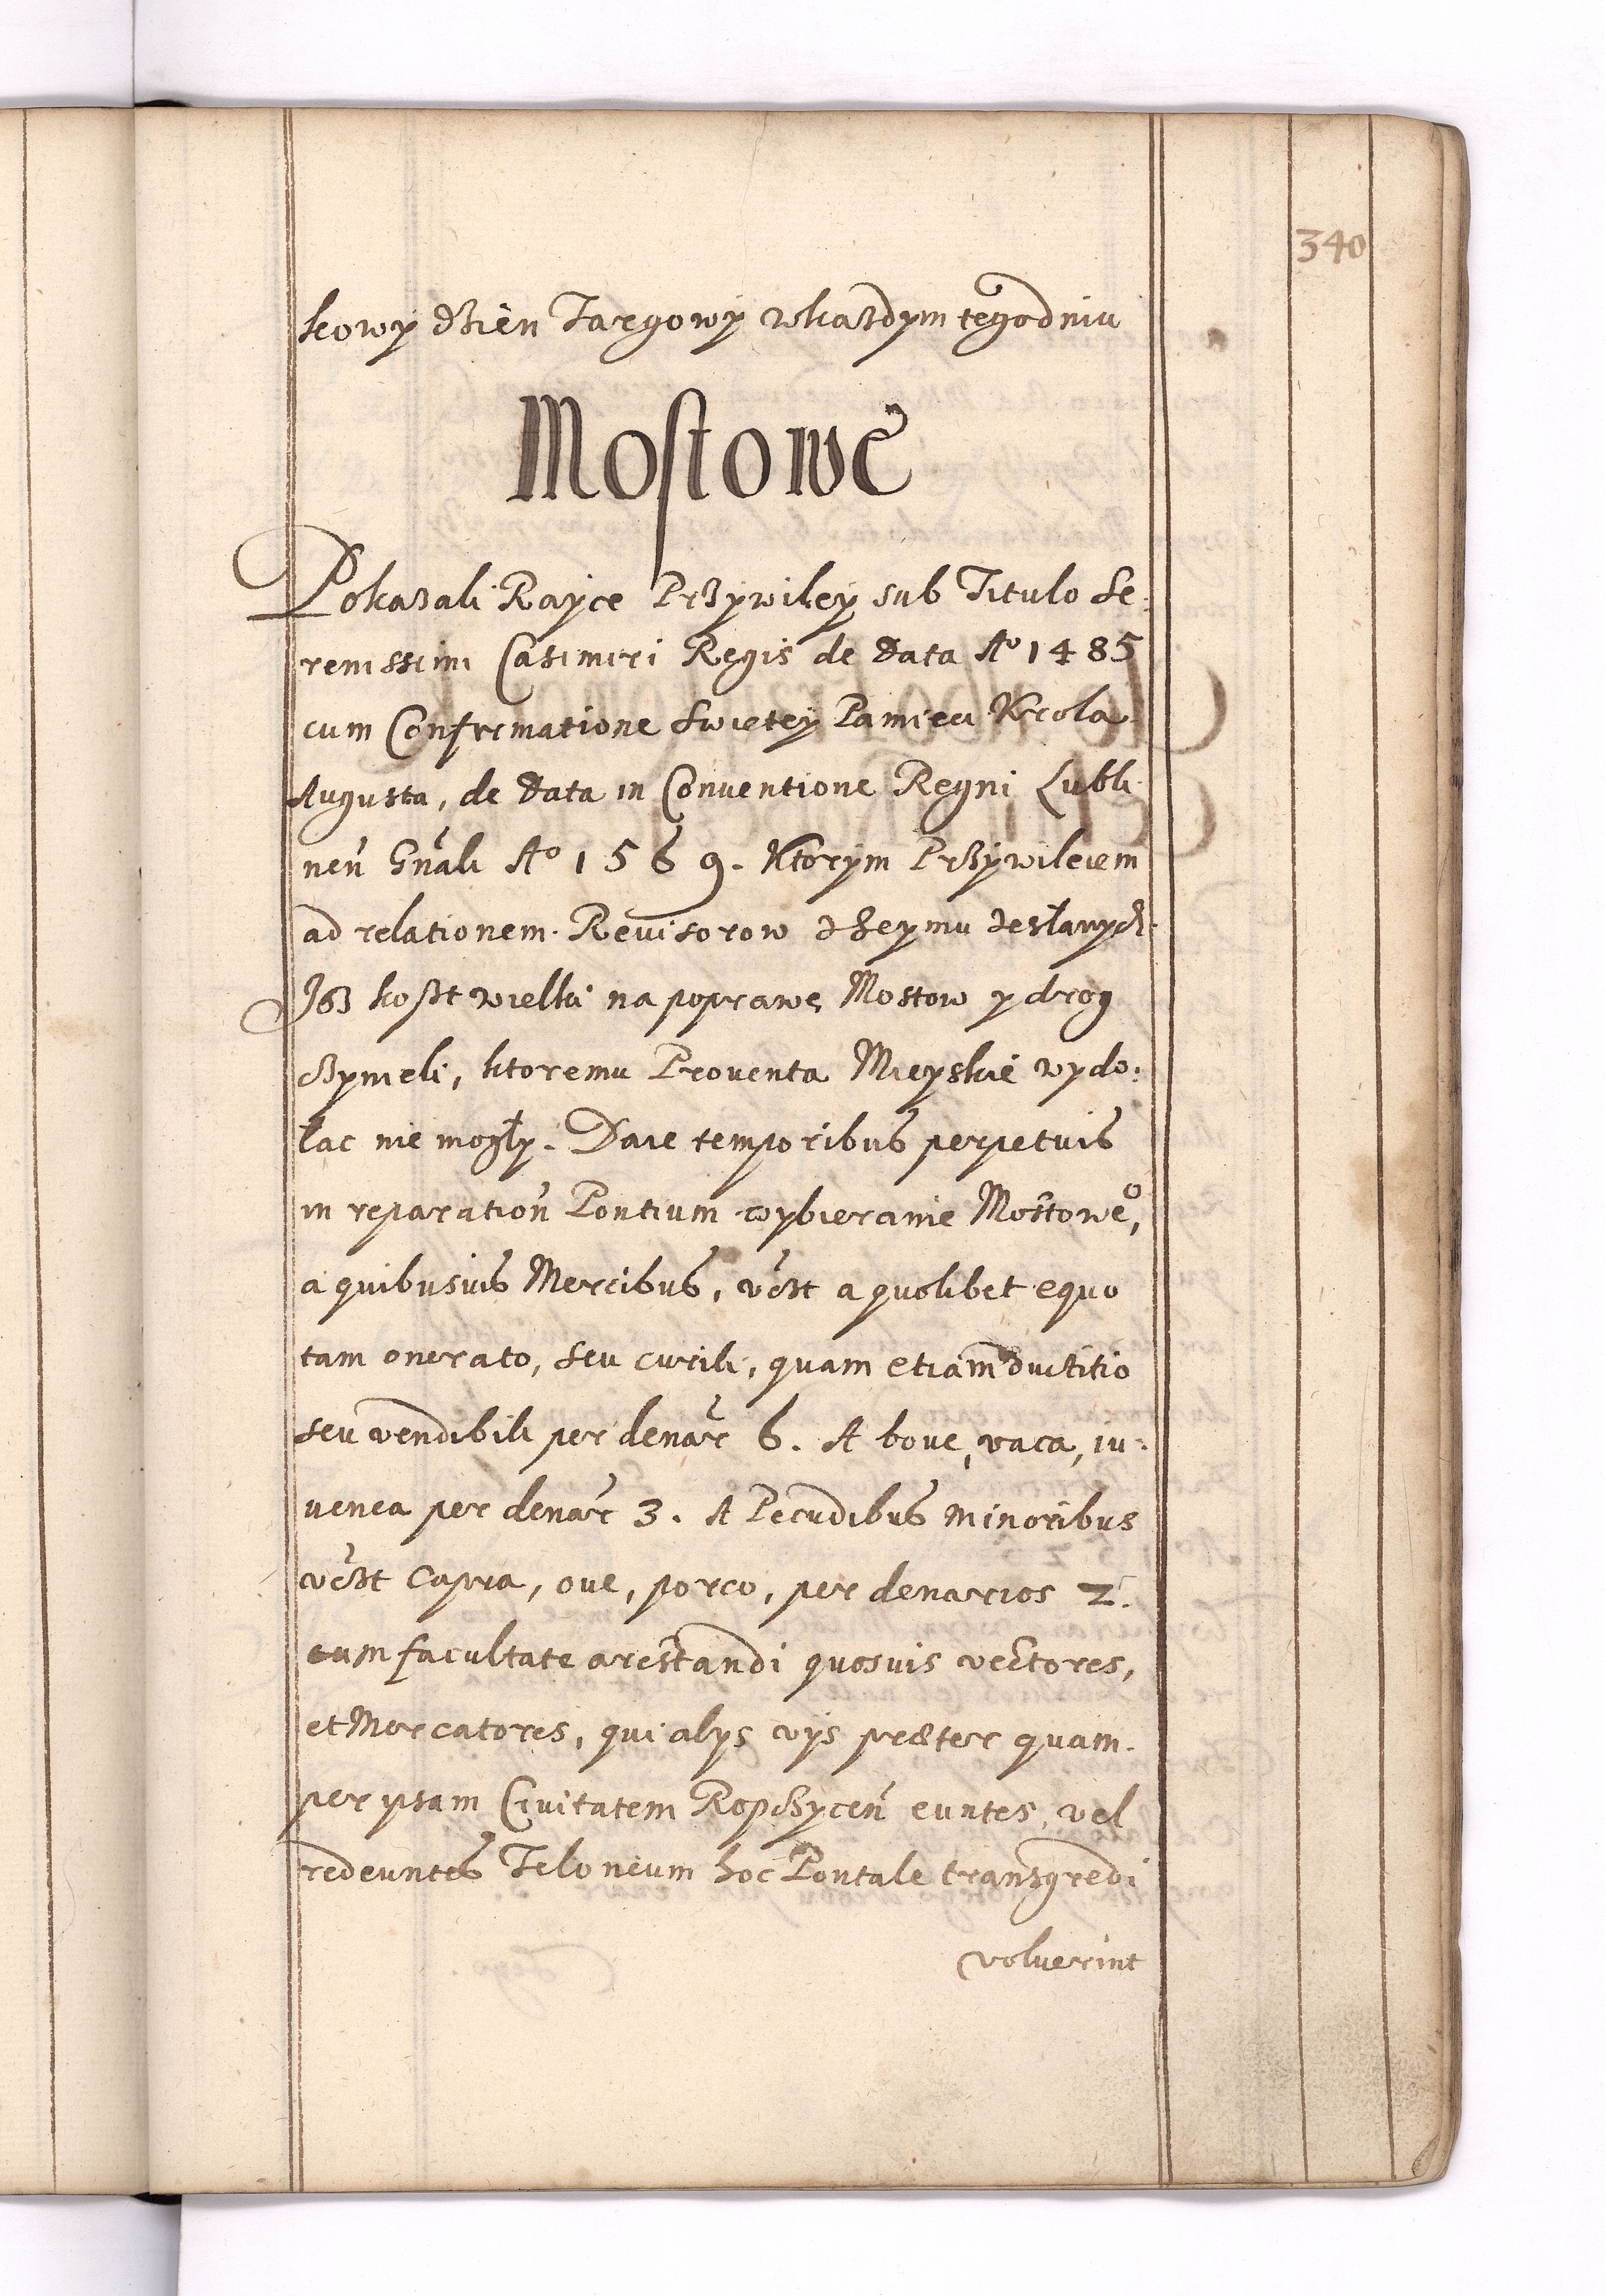 340
kowy dzien Targowy wkazdym tegodniu
Mostowe
Pokazali Rayce Przywiley sub Titulo Se:
renissimi Casimiri Regis de Data Aº 1485
cum Confirmatione Swietey Pamieci Krola
Augusta, de Data in Conuentione Regni Lubli
neñ Gñali Aº 1569. Ktorym Przywileiem
ad relationem Reuisorow z Seymu zesłanych
Isz koszt wielki na poprawę Mostow y drog
czynieli, ktoremu Prouenta Mieyskie wydo:
łac nie mogły. Daie temporibus perpetuis
in reparationẽ Pontium wybieranie Mostoweº,
a quibusuis Mercibus, vẽzt a quolibet equo
tam onerato, seu curili, quam etiam ductitio
seu vendibili per denar̃ 6. A boue, vaca, iu:
uenca per denar̃ 3. A Pecudibus minoribus
vẽzt capra, oue, porco, per denarios 2.
cum facultate arestandi quosuis vectores,
et Mercatores, qui alys vys præter quam
per ipsam Ciuitatem Ropczyceñ euntes, vel
redeuntes Teloneum hoc Pontale transgredi
voluerint